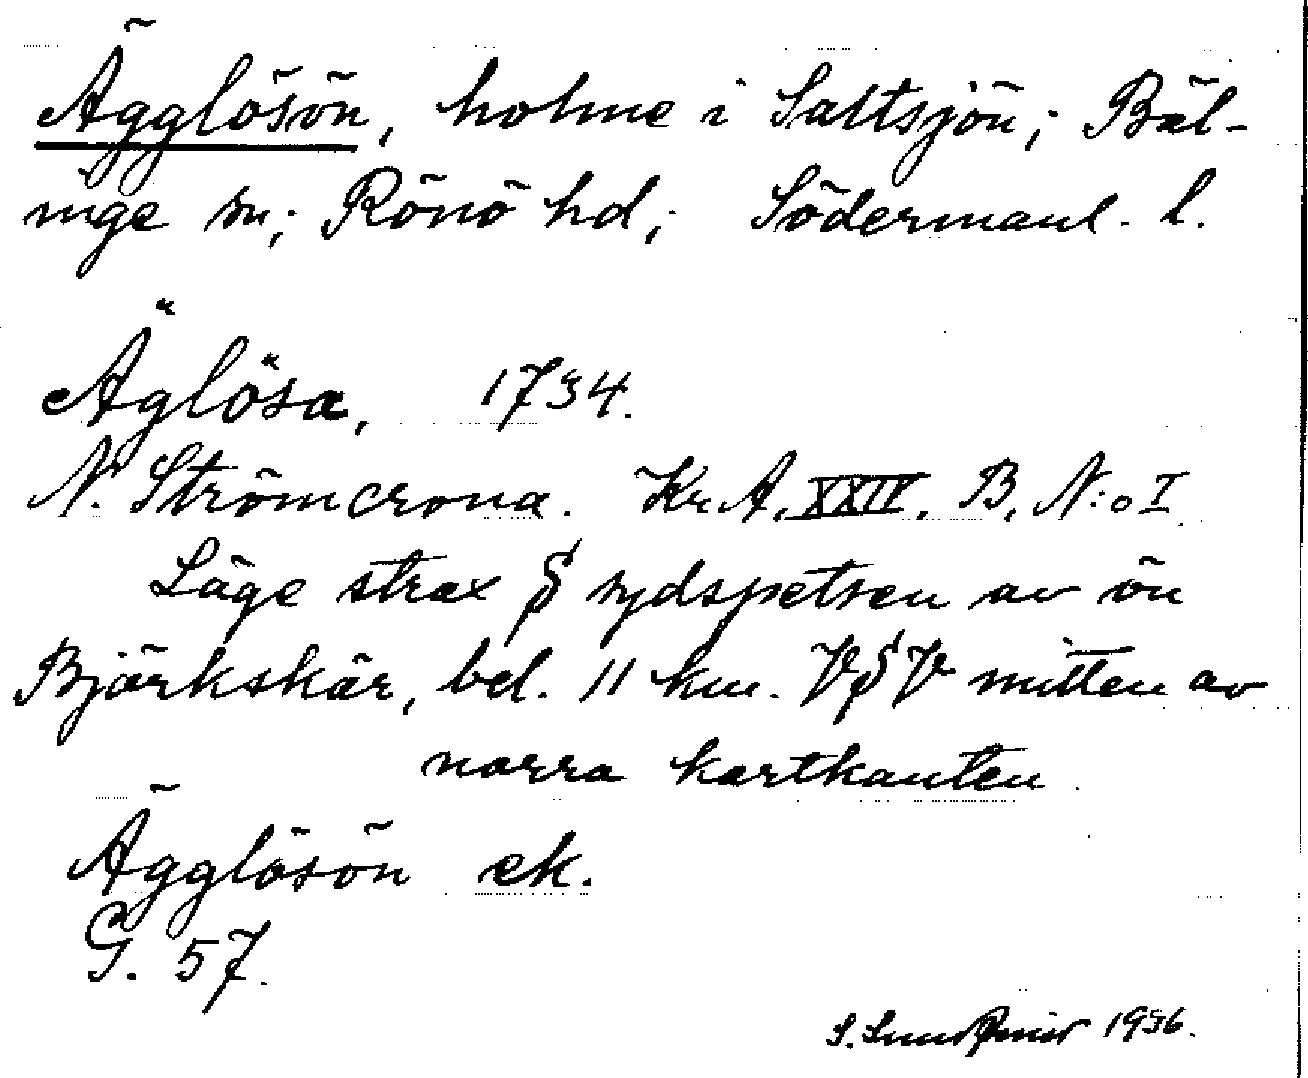 Ägglösön, holme i Saltsjön; Bäl-
inge sn; Rönö hd; Södermanl. l.
Äglösa, 1734.
N. Strömcrona. Kr. A. XXIV. B. N:o I
Läge strax S sydspetsen av ön
Björkskär, bel. 11 km. VSV mitten av
norra kartkanten.
Ägglösön ek.
G. 57.
S. 1936.